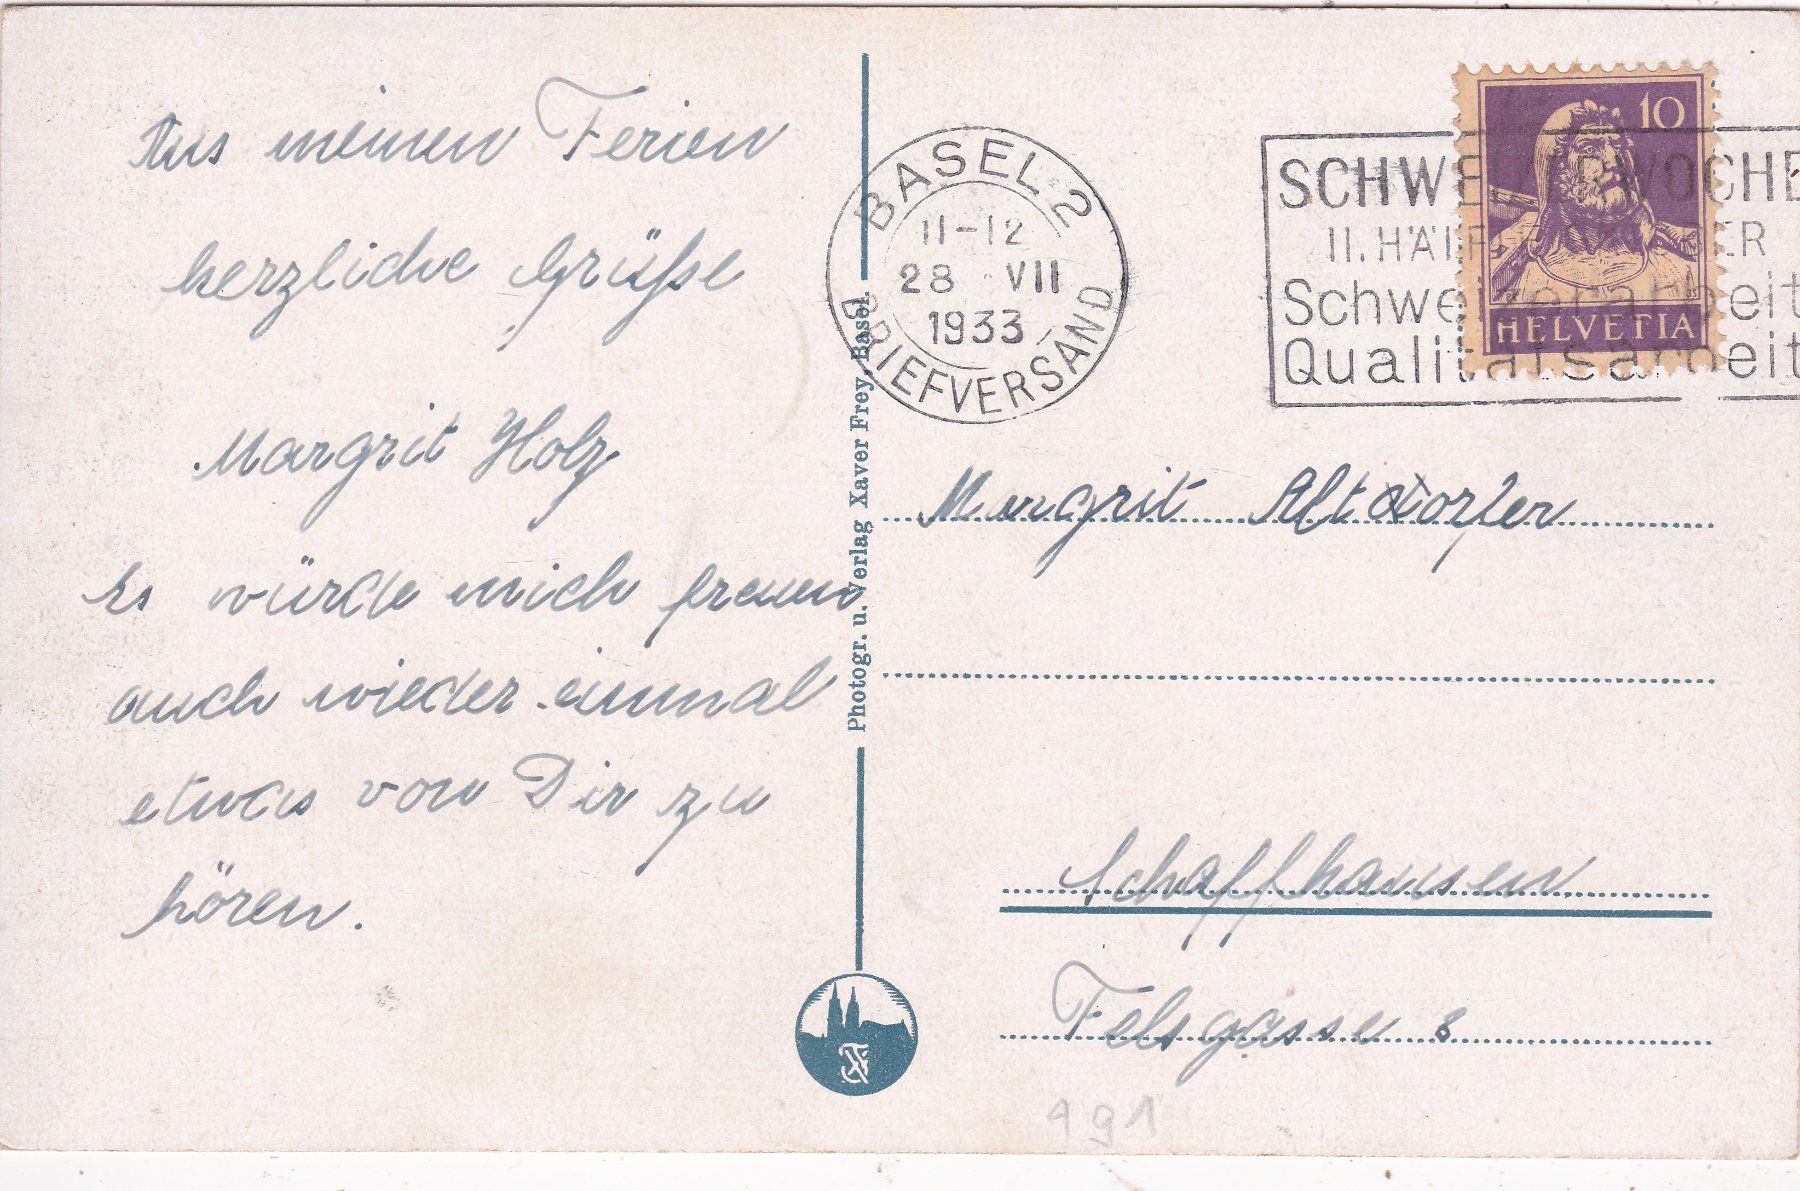 Aus meinen Ferien
herzliche Grüße
Margrit Holz
Es würde mich freuen
auch wieder einmal
etwas von Dir zu
hören.
Photogr. u. Verlag Xaver Frey, Basel.
BASEL 2
11-12
28 VII
1933
BRIEFVERSAND
10
HELVETIA
SCHWEIZERWOCHE
II. HÄLFTE OKTOBER
Schweizerarbeit
Qualitätsarbeit
Margrit Altdorfer
Schaffhausen
Felsgasse 8
491